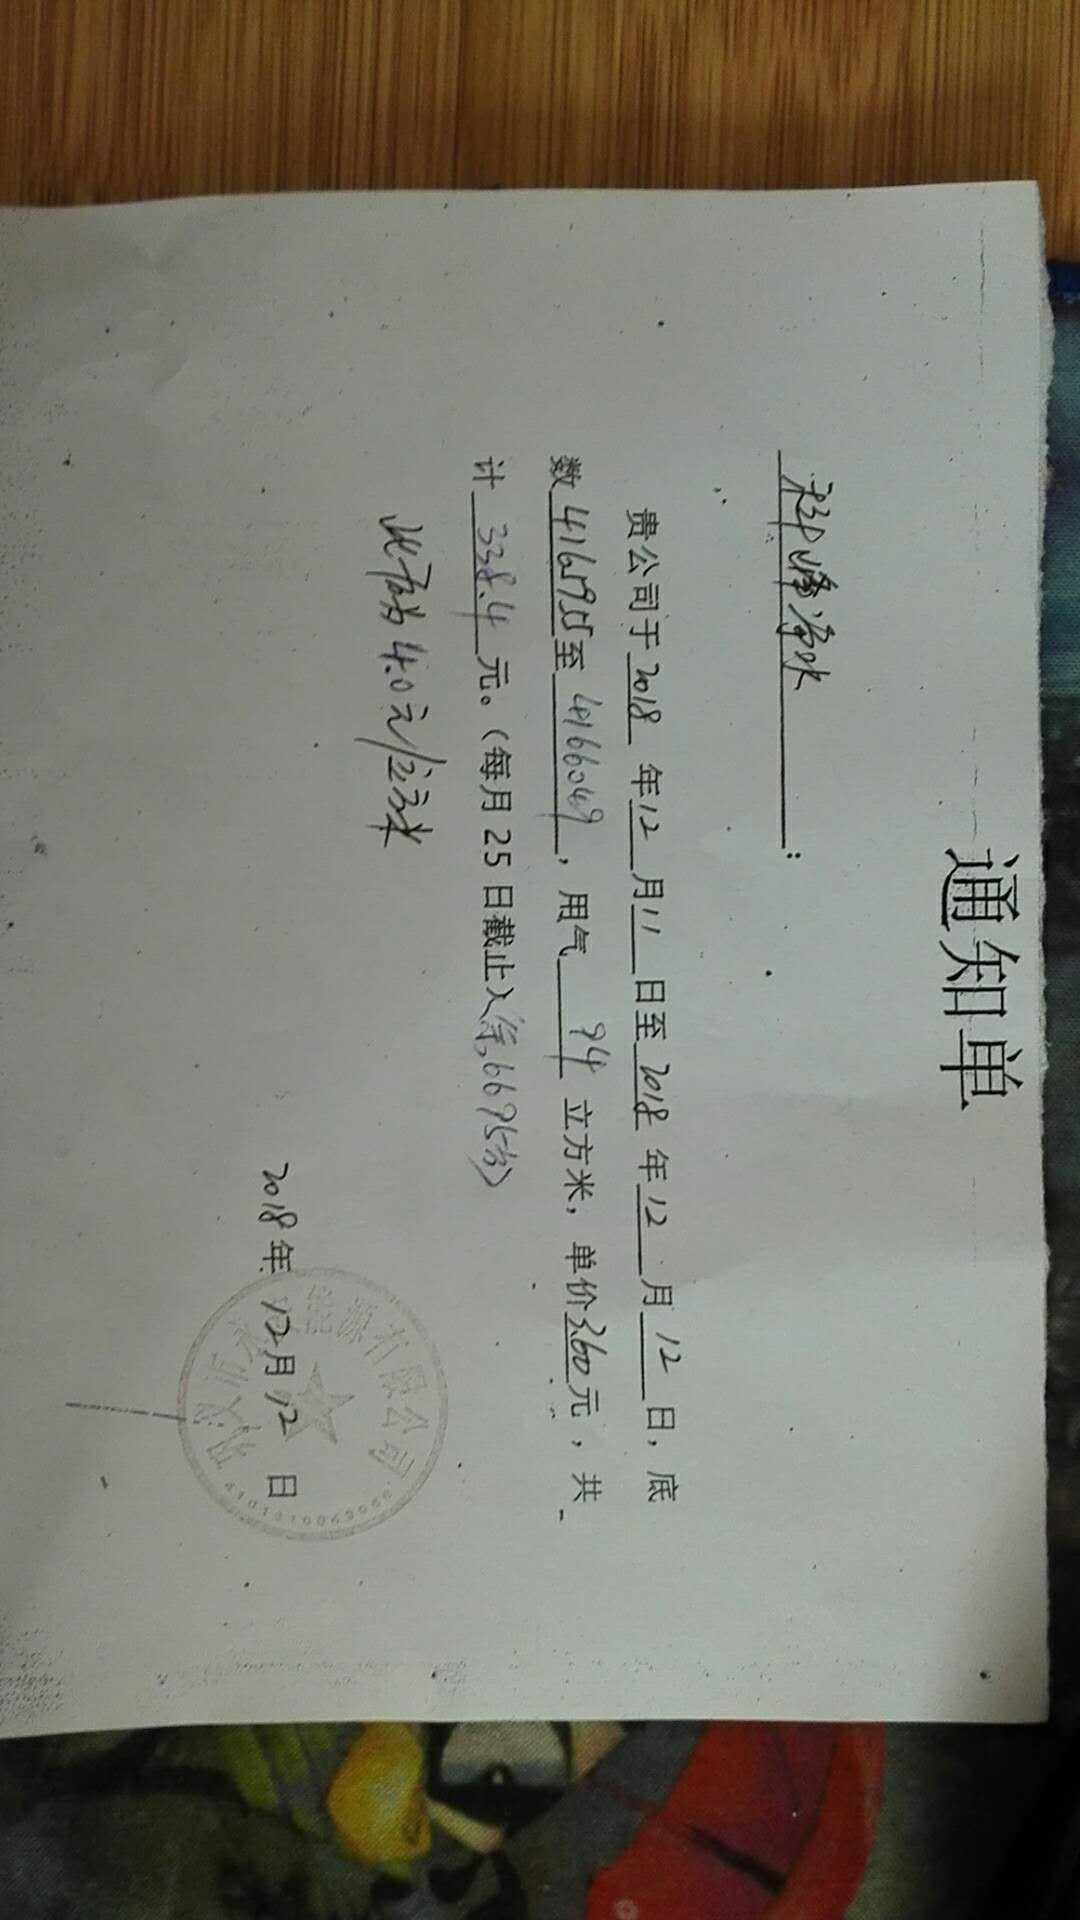 通知单
净水：
贵公司于2018年12月11日至2018年12月12日，底
数4165955至4166049，用气94立方米，单价3.60元，共
计338.4元。（每月25日截止）（余6695方）
此后为4.0元/立方米
2018年12月12日
能源有限公司